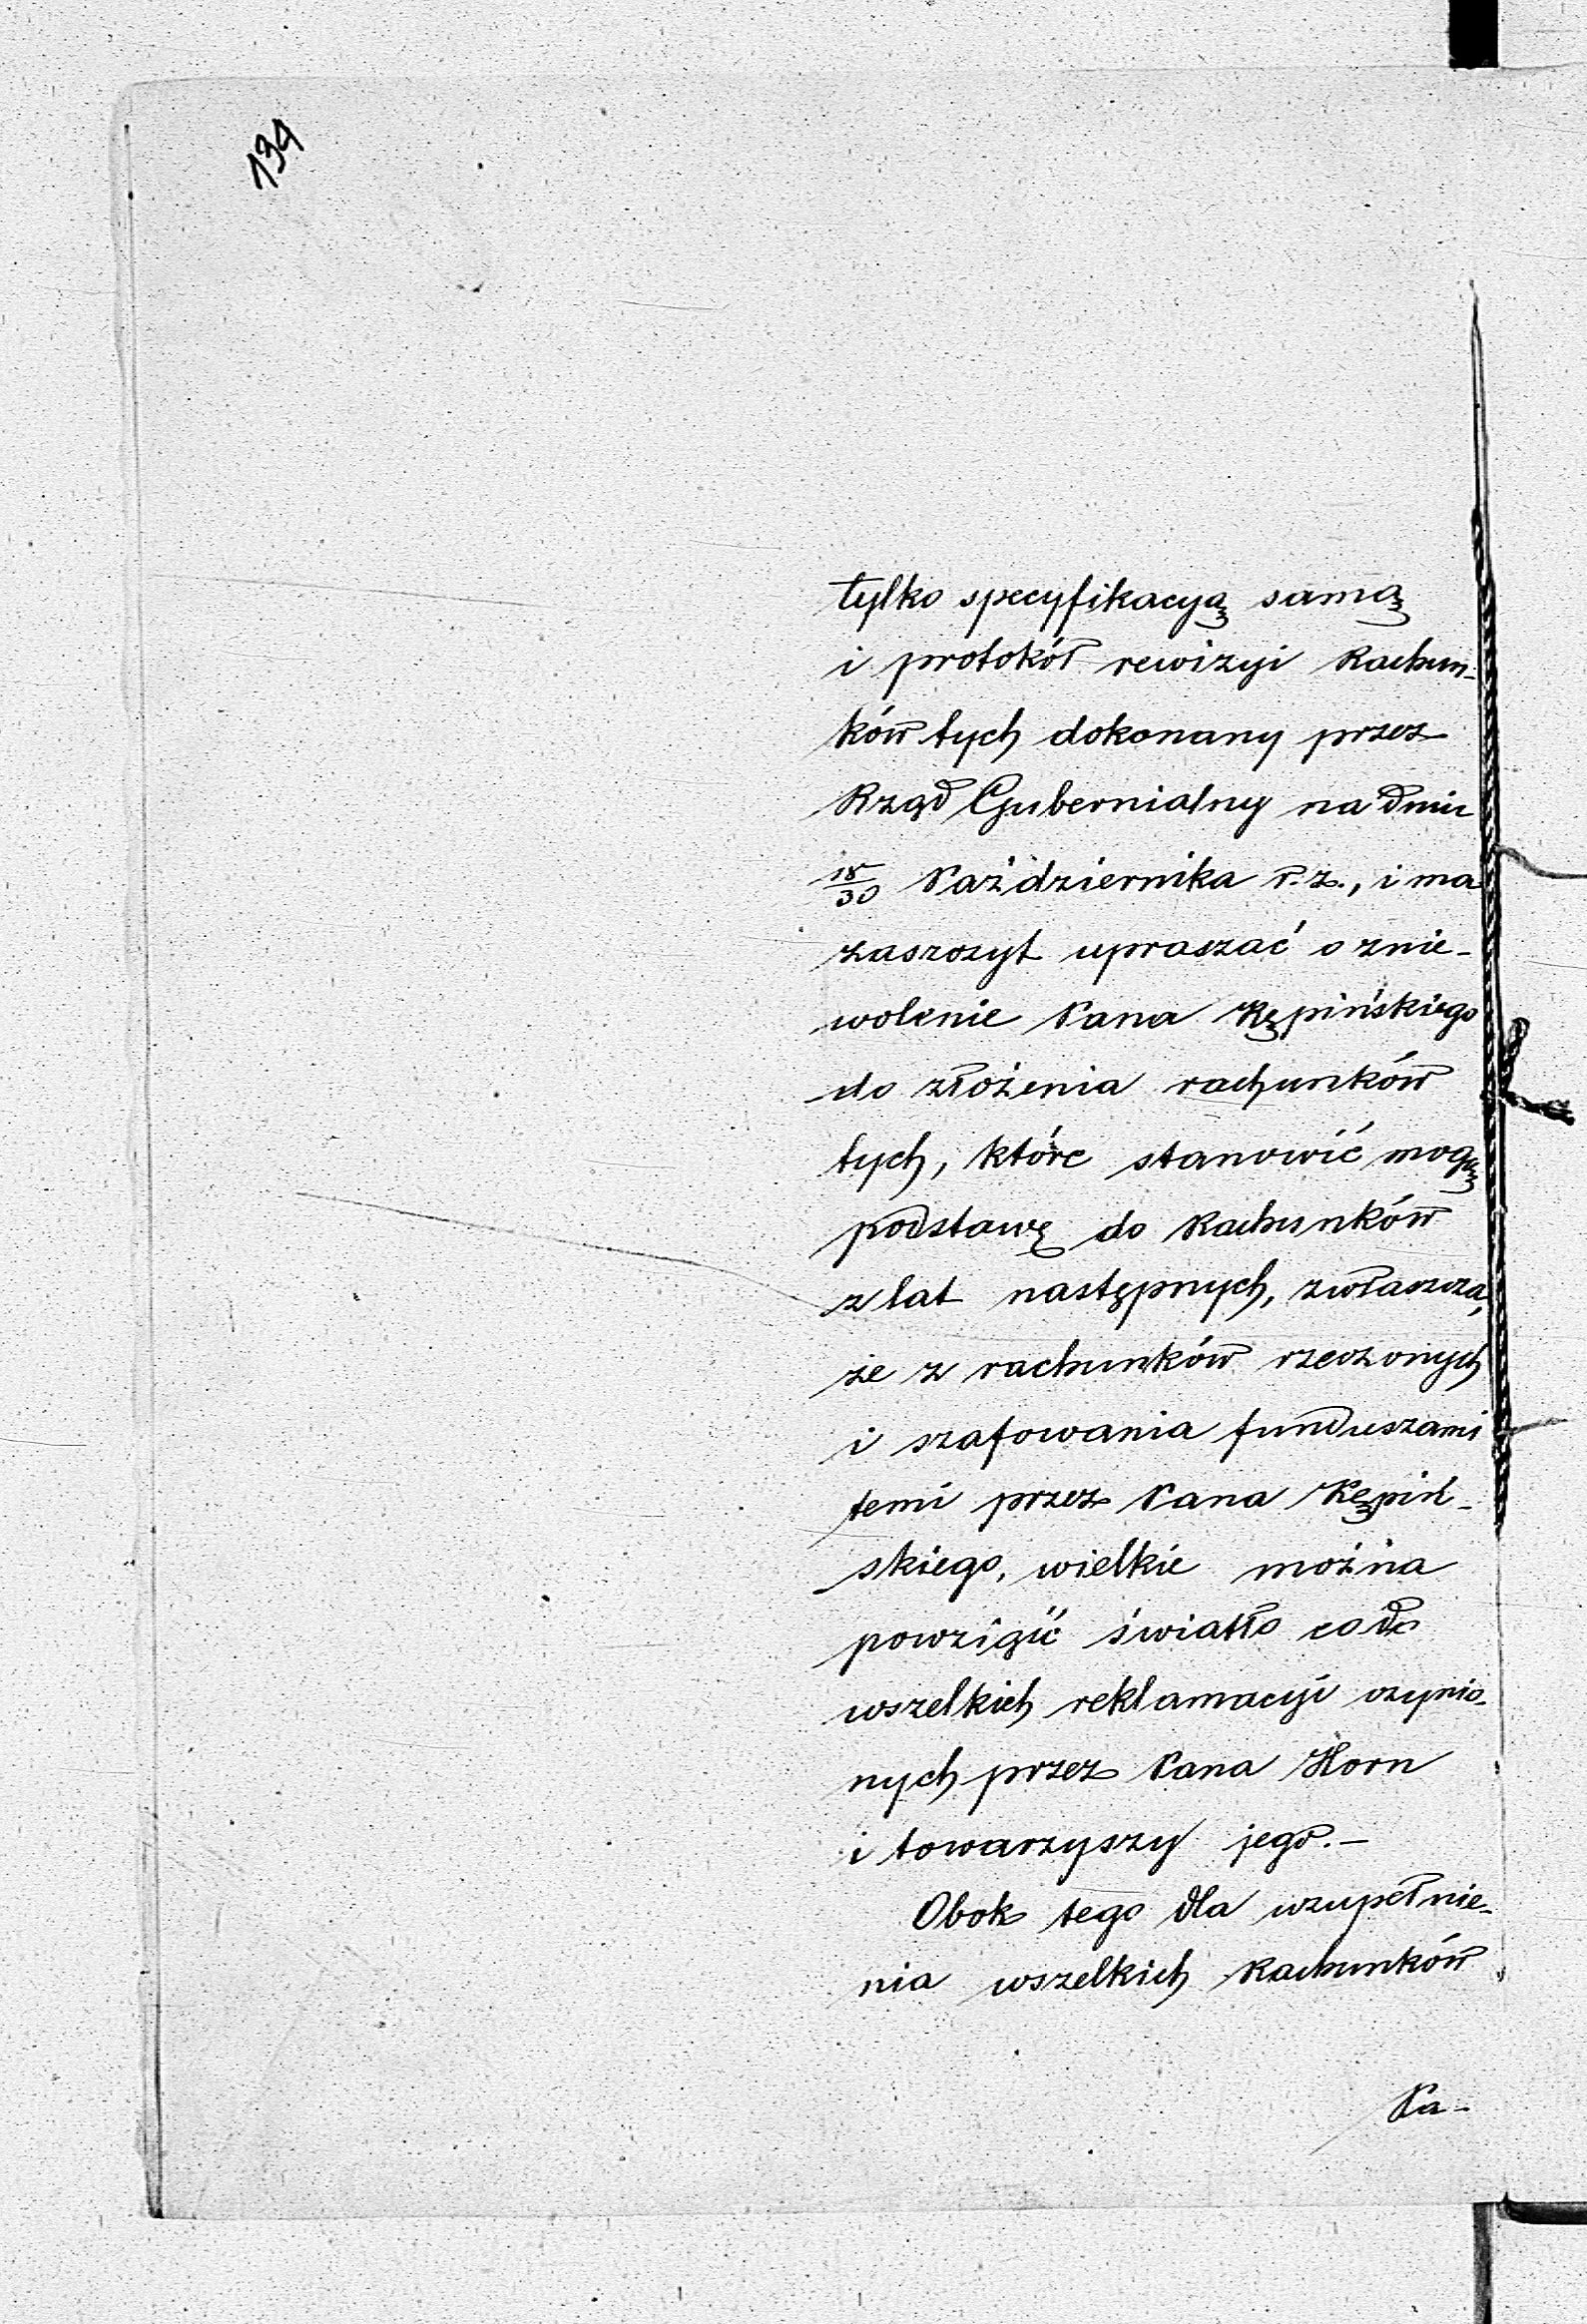 134
tylko specyfikacyą samą
i protokół rewizyi Rachun-
ków tych dokonany przez
Rząd Gubernialny na dniu
18/30 Października r. z., i ma
zaszczyt upraszać o znie-
wolenie Pana Kępińskiego
do złożenia rachunków
tych, które stanowić mogą
podstawę do Rachunków
z lat następnych, zwłaszcza,
że z rachunków rzeczonych
i szafowania funduszami
temi przez Pana Kępiń-
skiego, wielkie można
powziąść światło co do
wszelkich reklamacyi czynio-
nych przez Pana Horn
i towarzyszy jego.—
Obok tego dla uzupełnie-
nia wszelkich Rachunków
Pa-